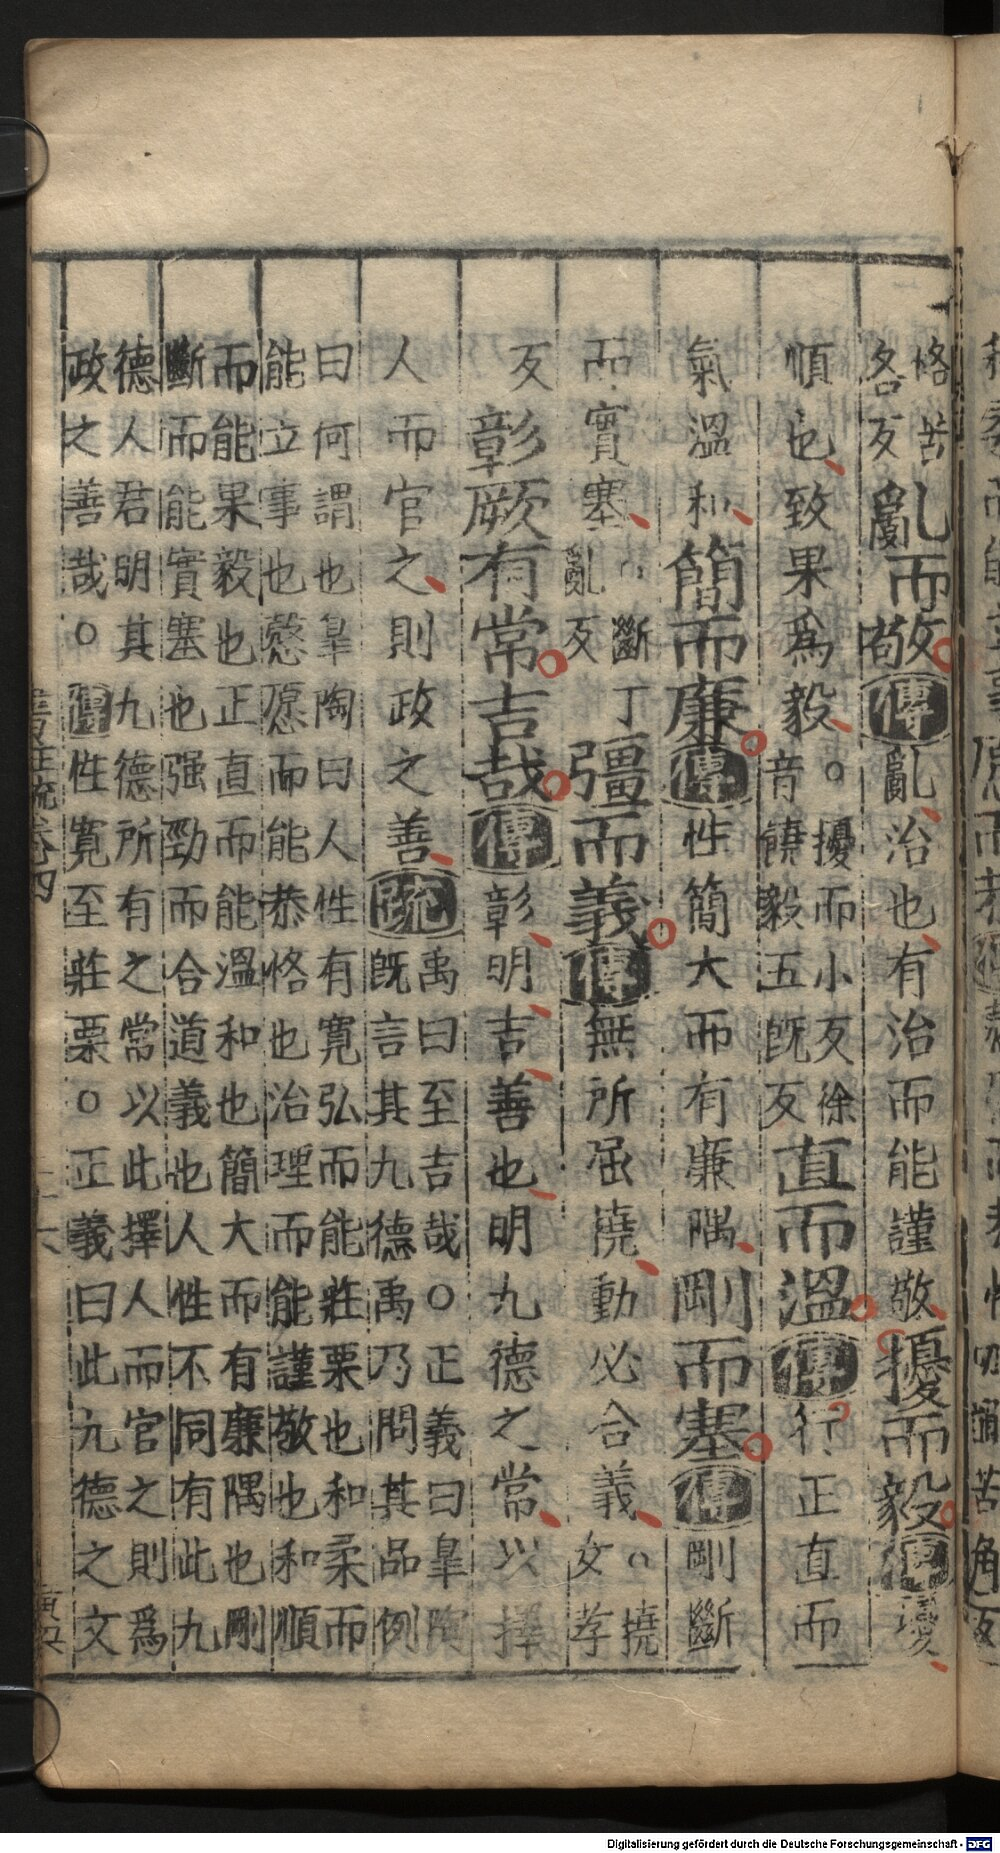 格苦
各反
亂而敬傳亂治也有治而能謹敬擾而毅傳擾
順也致果爲毅○
擾而小反徐
音饒毅五既反
直而溫傳行正直而
氣溫和簡而廉傳性簡大而有廉隅剛而塞傳剛斷
而實塞○
斷丁
亂反
彊而義傳無所屈撓動必合義○
撓
女孝
反彰厥有常吉哉傳彰明吉善也明九德之常以擇
人而官之則政之善疏
禹曰至吉哉○正義曰皐陶
既言其九德禹乃問其品例
曰何謂也皐陶曰人性有寬弘而能莊栗也和柔而
能立事也愨愿而能恭恪也治理而能謹敬也和順
而能果毅也正直而能溫和也簡大而有廉隅也剛
斷而能實塞也强勁而合道義也人性不同有此九
德人君明其九德所有之常以此擇人而官之則爲
政之善哉○傳性寬至莊栗○正義曰此九德之文
Digitalisierung gefördert durch die Deutsche Forschungsgemeinschaft - DFG